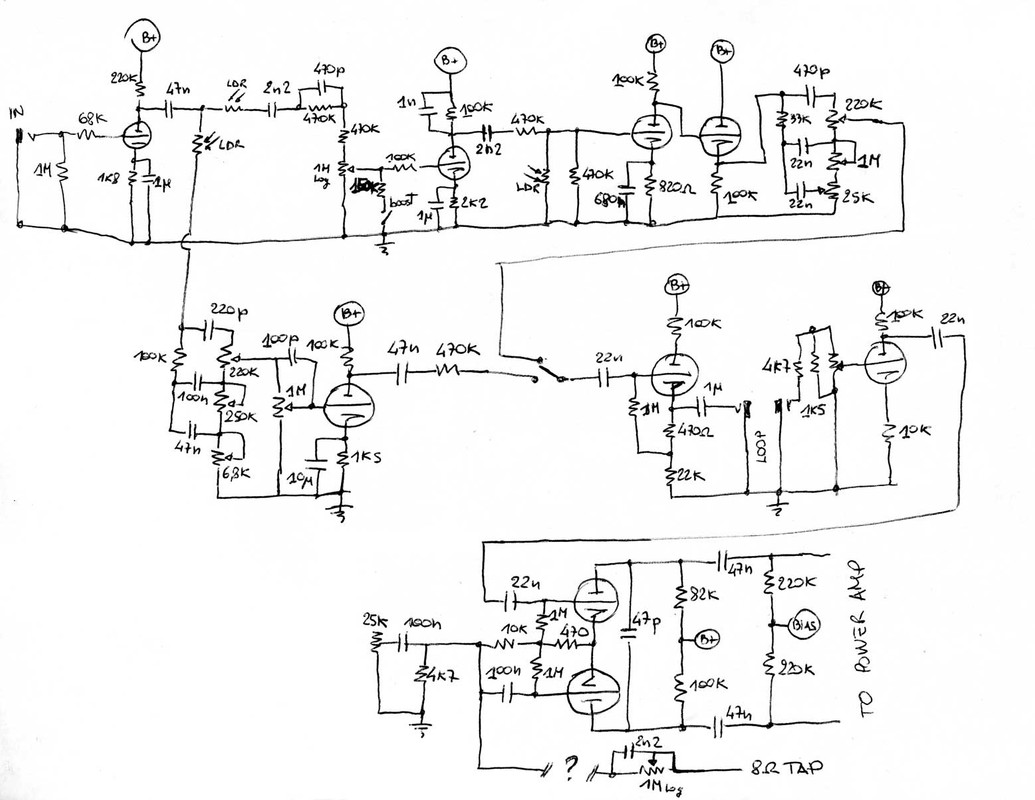 B+
220K
47n
LDR
2n2
470p
470K
IN
68K
1M
1K8
1µ
LDR
470K
1M
Log
100K
boost
B+
1n
100K
2n2
470K
1µ
2K2
LDR
470K
B+
100K
680n
820Ω
B+
100K
470p
220K
33K
22n
1M
22n
25K
220p
100K
220K
100n
250K
47n
6,8K
100p
1M
B+
100K
10µ
1K5
47n
470K
22n
B+
100K
1M
1µ
470Ω
22K
LOOP
4K7
1K5
B+
100K
22n
10K
25K
100n
4K7
22n
1M
10K
470
100n
1M
47p
82K
B+
100K
47n
220K
Bias
220K
47n
TO POWER AMP
?
2n2
1M Log
8Ω TAP